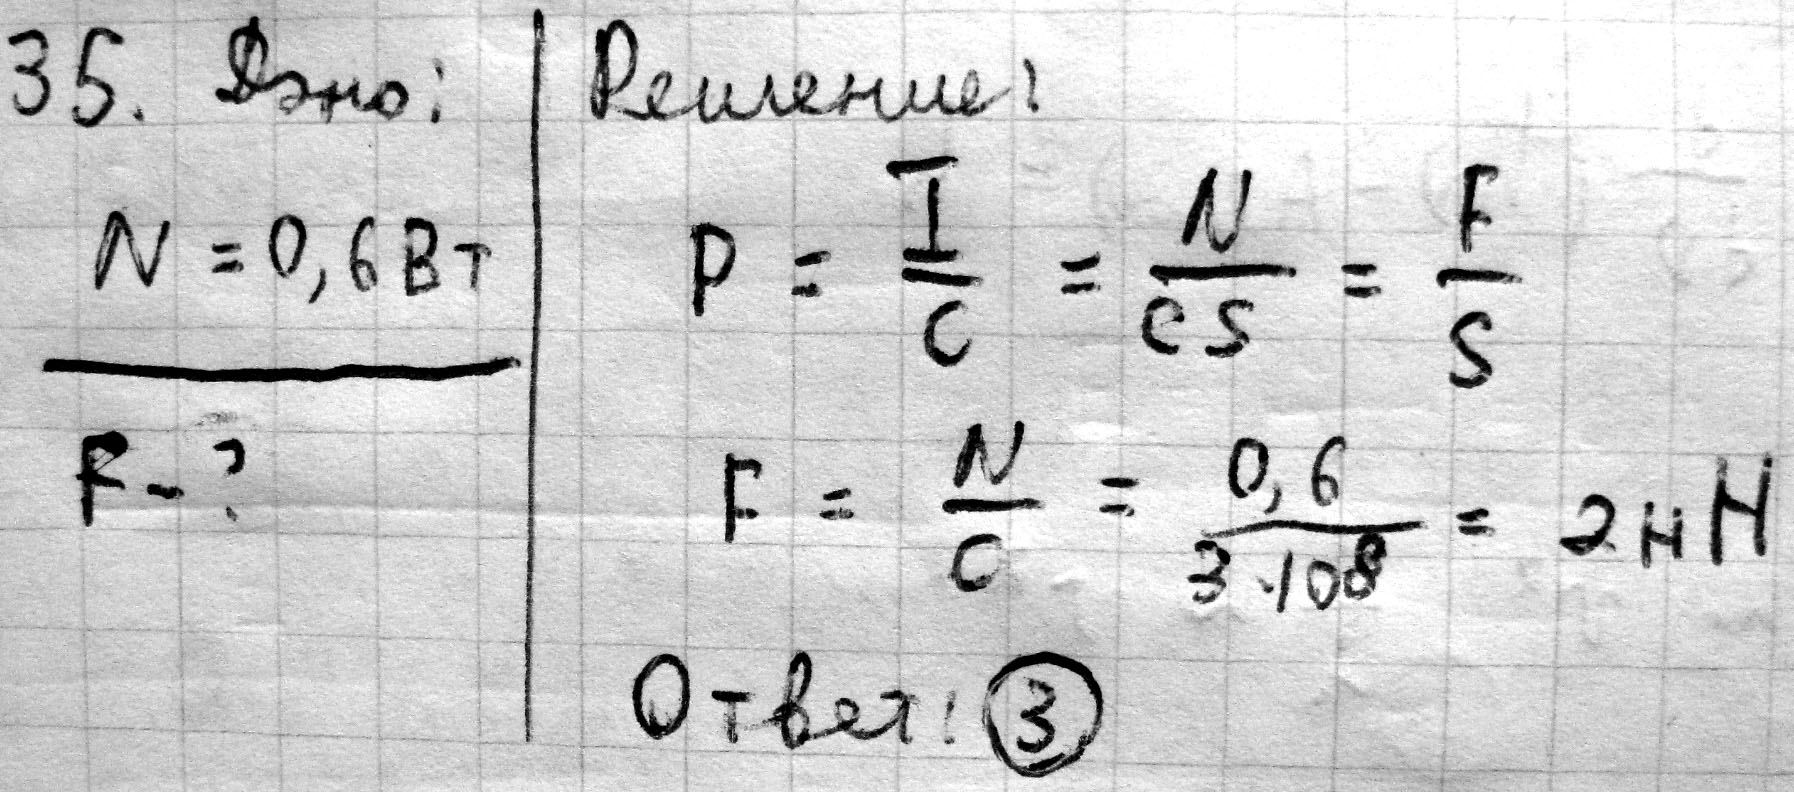 35. Дано:
N = 0,6 Вт
F - ?
Решение:
P = I/c = N/cS = F/S
F = N/c = 0,6/3·10⁸ = 2 нН
Ответ: 3